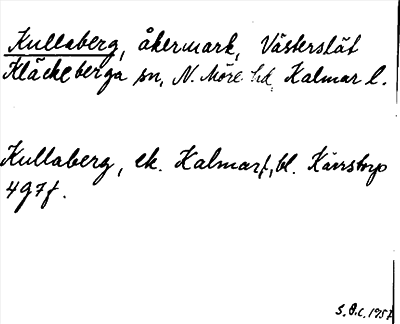 Kullaberg, åkermark, Västerslät
Kläckeberga sn, N. Möre hd, Kalmar l.
Kullaberg, ek. Kalmarf, bl. Kärrstorp
497f.
S.B.C. 1957